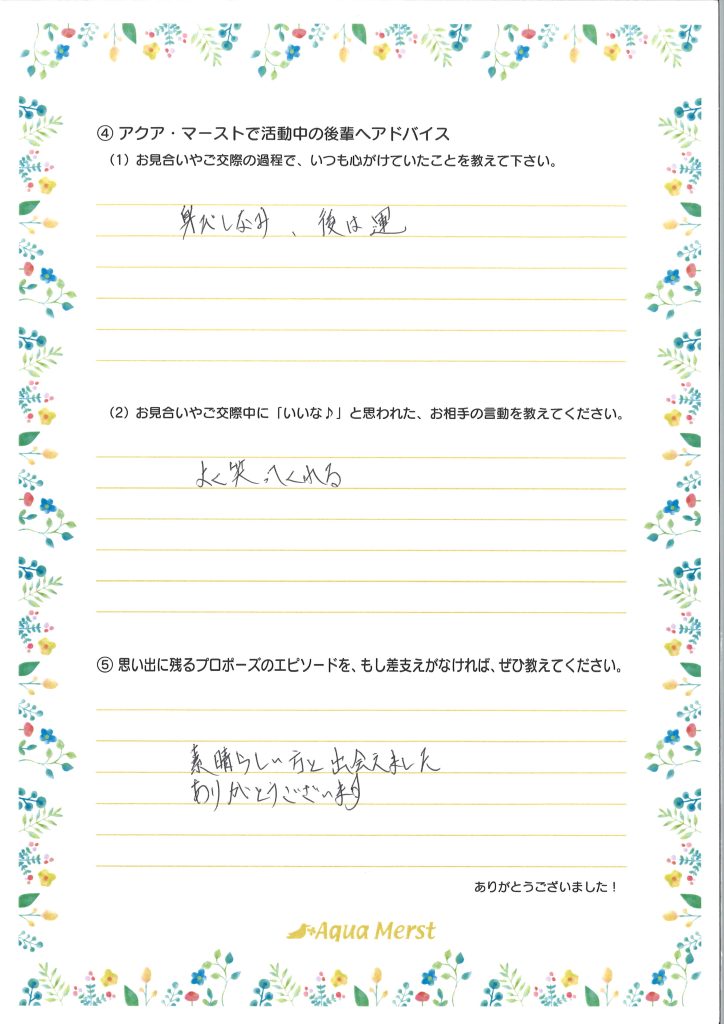 ④ アクア・マーストで活動中の後輩へアドバイス
（1）お見合いやご交際の過程で、いつも心がけていたことを教えて下さい。
身だしなみ、後は運
（2）お見合いやご交際中に「いいな♪」と思われた、お相手の言動を教えてください。
よく笑ってくれる
⑤ 思い出に残るプロポーズのエピソードを、もし差支えがなければ、ぜひ教えてください。
素晴らしい方と出会えました
ありがとうございます
ありがとうございました！
Aqua Merst